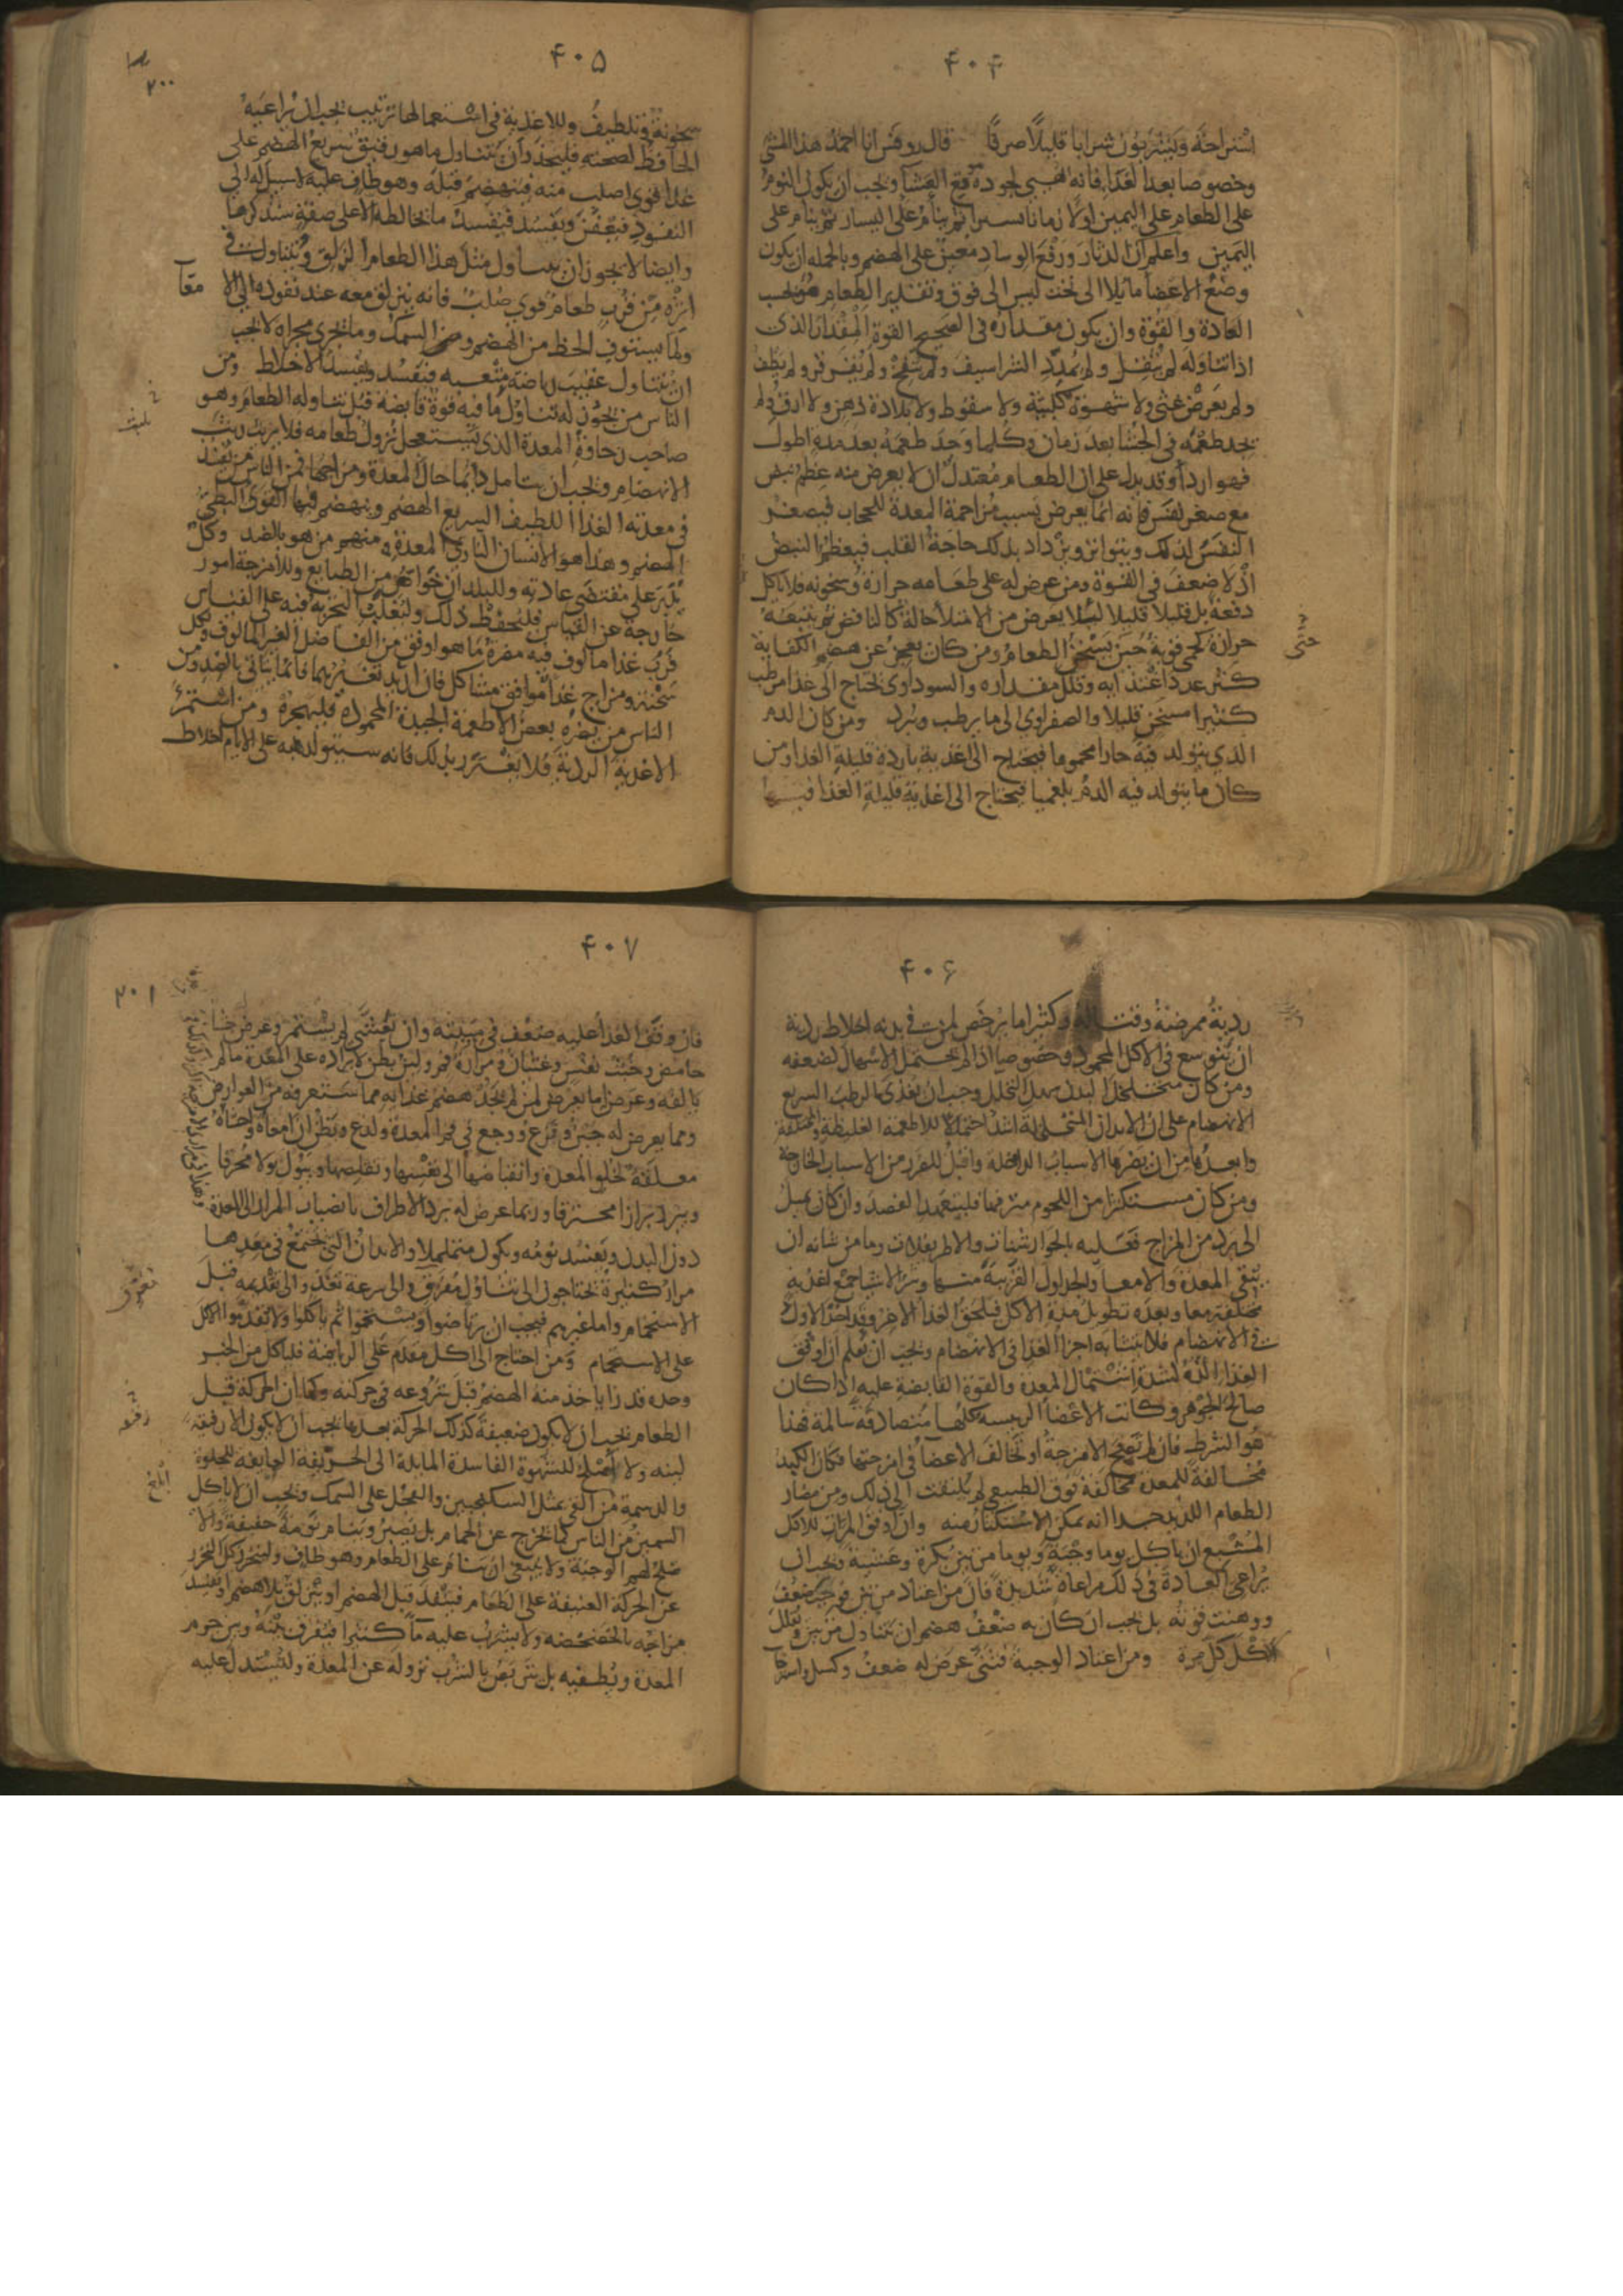 ۴۰۴
استراحة ويشربون شرابا قليلا صرفا قال روفس انا احمد هذا المشى
وخصوصا بعد الغذا فانه يهيى لجودة موقع العشا ويجب ان يكون النوم
على الطعام على اليمين اولا زمانا يسيرا ثم ينام على اليسار ثم ينام على
اليمين واعلم ان الدثار ورفع الوساد معين على الهضم وبالجملة ان يكون
وضع الاعضا مايلا الى تحت ليس الى فوق وتقدير الطعام هو بحسب
العادة والقوة وان يكون مقداره فى الصحيح القوة المقدار الذى
اذا تناوله لم يثقل ولم يمدد الشراسيف ولم ينفخ ولم يقرقر ولم يطف
ولم يعرض غثى ولا شهوة كلبية ولا سقوط ولا بلادة ذهن ولا ارق ولم
يجد طعمه فى الجشا بعد زمان وكلما وجد طعمه بعد مدة اطول
فهو اردأ وقد يدل على ان الطعام معتدل ان لا يعرض منه عظم نبض
مع صغر نفس فانه انما يعرض بسبب مزاحمة المعدة للحجاب فيصغر
النفس لذلك ويتواتر ويزداد بذلك حاجة القلب فيعظم النبض
اذ لا ضعف فى القوة ومن عرض له على طعامه حرارة وسخونه فلا ياكل
دفعة بل قليلا قليلا ليلا يعرض من الامتلا حالة كالنافض ثم يتبعه
حرارة كحمى قوية حين يسخن الطعام ومن كان يعجز عن هضم الكفاية
كثر عدد اغتذايه وقلل مقداره والسوداوى يحتاج الى غذا مرطب
كثيرا مسخن قليلا والصفراوى الى ما يرطب ويبرد ومن كان الدم
الذي يتولد فيه حارا محموما فيحتاج الى اغذية باردة قليلة الغذا ومن
كان ما يتولد فيه الدم بلغميا فيحتاج الى اغذية قليلة الغذا فيها
۴۰۵
۲۰۰
سخونة وتلطيف وللاغذية فى استعمالها ترتيب يجب ان يراعيه
الحافظ لصحته فليحذر ان يتناول ما هو رقيق سريع الهضم على
غذا قوى اصلب منه فينهضم قبله وهو طاف عليه لا سبيل له الى
النفوذ فيعفن ويفسد فيفسد ما يخالطه الا على صفة سنذكرها
وايضا لا يجوز ان يتناول مثل هذا الطعام المزلق ويتناول فى
اثره من قرب طعام قوي صلب فانه ينزلق معه عند نفوذه الى الامعا
ولما يستوف الحظ من الهضم ومن السمك وما يجرى مجراه لا يجب
ان يتناول عقيب رياضة متعبه فيفسد ويفسد الاخلاط ومن
الناس من يجوز له تناول ما فيه قوة قابضه قبل تناوله الطعام وهو
صاحب رخاوة المعدة الذى يستعجل نزول طعامه فلا يريث ريث
الانهضام ويجب ان يتامل دايما حال المعدة ومزاجها فمن الناس من يفسد
فى معدته الغذا اللطيف السريع الهضم وينهضم فيها القوى البطى
الهضم وهذا هو الانسان النارى المعدة ومنهم من هو بالضد وكل
يدبر على مقتضى عادته وللبلدان خواص من الطبايع وللامزجة امور
خارجة عن القياس فليحفظ ذلك وليغلب التجربة فيه على القياس
فرب غذا مالوف فيه مضرة ما هو اوفق من الفاضل الغير المالوف ولكل
سحنة ومزاج غذا موافق مشاكل فان اريد تغييرهما فانما يتاتى بالضد ومن
الناس من يضره بعض الاطعمة الجيدة المحمودة فليهجره ومن استمرأ
الاغذية الردية فلا يغتر بذلك فانه سيتولد فيه على الايام اخلاط
۴۰۶
ردية ممرضة وقتالة وكثيرا ما يرخص لمن فى بدنه اخلاط ردية
ان يتوسع فى الاكل المحمود وخصوصا اذا لم يحتمل الاسهال لضعفه
ومن كان متخلخل البدن سهل التحلل وجب ان يغذى بالرطب السريع
الانهضام على ان الابدان المتخلخلة اشد احتمالا للاطعمة الغليظة والمختلفة
وابعد من ان يضرها الاسباب الداخلة واقبل للضرر من الاسباب الخارجة
ومن كان مستكثرا من اللحوم مترفها فليتعهد الفصد وان كان يميل
الى برد من المزاج فعليه بالجوارشنات والاطريفلات وما من شانه ان
ينقى المعدة والامعا والجداول القريبة منها وشر الاشيا جمع اغذية
مختلفة معا وبعده تطويل مدة الاكل فيلحق الغذا الاخر وقد اخذ الاول
فى الانهضام فلا يتشابه اجزا الغذا فى الانهضام ويجب ان يعلم ان اوفق
الغذا الذه لشدة اشتمال المعدة والقوة القابضة عليه اذا كان
صالح الجوهر وكانت الاعضا الرييسه كلها متصادقة سالمة فهذا
هو الشرط فان لم تصح الامزجة او تخالف الاعضا فى امزجتها فكان الكبد
مخالفة للمعدة مخالفة فوق الطبيعى لم يلتفت الى ذلك ومن مضار
الطعام اللذيذ جدا انه يمكن الاستكثار منه وان اوفق المرات للاكل
المشبع ان ياكل يوما وجبة ويوما مرتين بكرة وعشية ويجب ان
يراعى العادة فى ذلك مراعاة شديدة فان من اعتاد مرتين فوجب ضعف
ووهنت قوته بل يجب ان كان به ضعف هضم ان يتناول مرتين ويقلل
الاكل كل مرة ومن اعتاد الوجبة فثنى عرض له ضعف وكسل واسترخا
۴۰۷
۲۰۱
فان وقف الغذا عليه ضعف فى مبيته وان تعشى لم يستمر وعرض جشا
حامض وخبث نفس وغثيان ومرارة فم ولين بطن لايراده على المعدة ما لم
يالفه وعرض ما يعرض لمن لم يجد هضم غذايه مما ستعرفه من العوارض
ومما يعرض له جبن وفزع ووجع فى فم المعدة ولذع ويظن ان امعاه واحشاه
معلقة لخلو المعدة وانقباضها الى نفسها وتقلصها ويبول بولا محرقا
ويبرز برازا محترقا وربما عرض له برد الاطراف بانصباب المرار الى المعدة
دون البدن ويفسد نومه ويكون متململا والابدان التى يجتمع فى معدها
مرار كثيرة يحتاجون الى تناول مفرق والى سرعة تغذ والى تقديمه قبل
الاستحمام واما غيرهم فيجب ان يرتاضوا ويستحموا ثم ياكلوا ولا يقدموا الاكل
على الاستحمام ومن احتاج الى اكل مقدم على الرياضة فلياكل من الخبز
وحده قدرا ياخذ منه الهضم قبل شروعه فى حركته وكما ان الحركة قبل
الطعام يجب ان لا يكون ضعيفة كذلك الحركة بعدها يجب ان لا يكون الا رقيقة
لينه ولا اصلح للشهوة الفاسدة المايلة الى الحريفة العايفة للحلوة
والدسمة من القى بمثل السكنجبين والفجل على السمك ويجب ان لا ياكل
السمين من الناس كما يخرج عن الحمام بل يصبر وينام نومة خفيفة والا
صلح لهم الوجبة ولا ينبغى ان ينام على الطعام وهو طاف وليتحرز كل التحرز
عن الحركة العنيفة على الطعام فينفذ قبل الهضم او ينزلق بلا هضم او يفسد
مزاجه بالخضخضه ولا يشرب عليه ما كثيرا فيفرق بينه وبين جرم
المعدة ويطفيه بل يتربص بالشرب نزوله عن المعدة وليستدل عليه